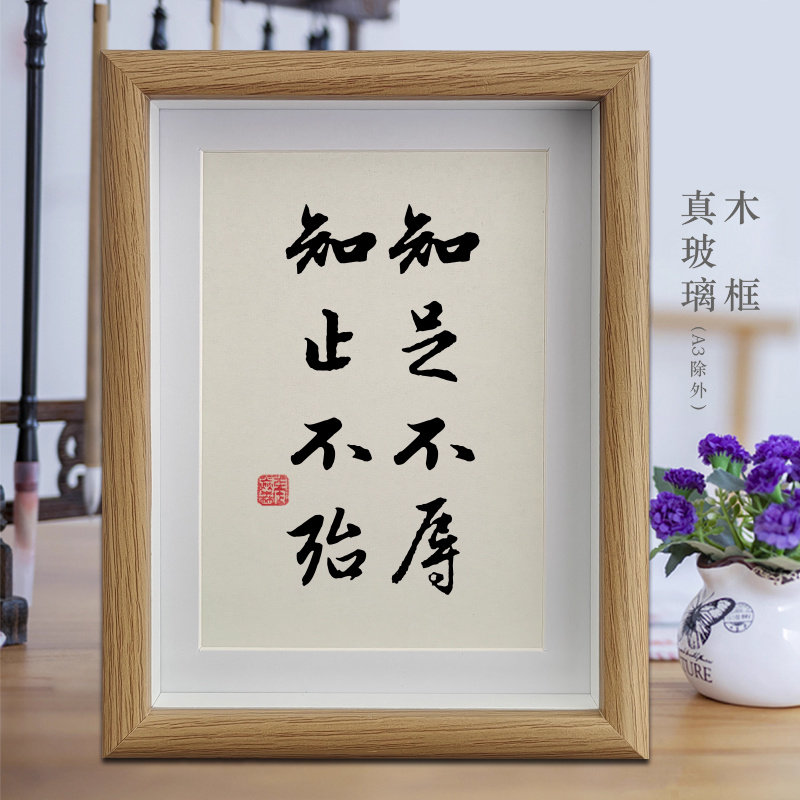 知足不辱
知止不殆
木框
真玻璃(A3除外)
TURE